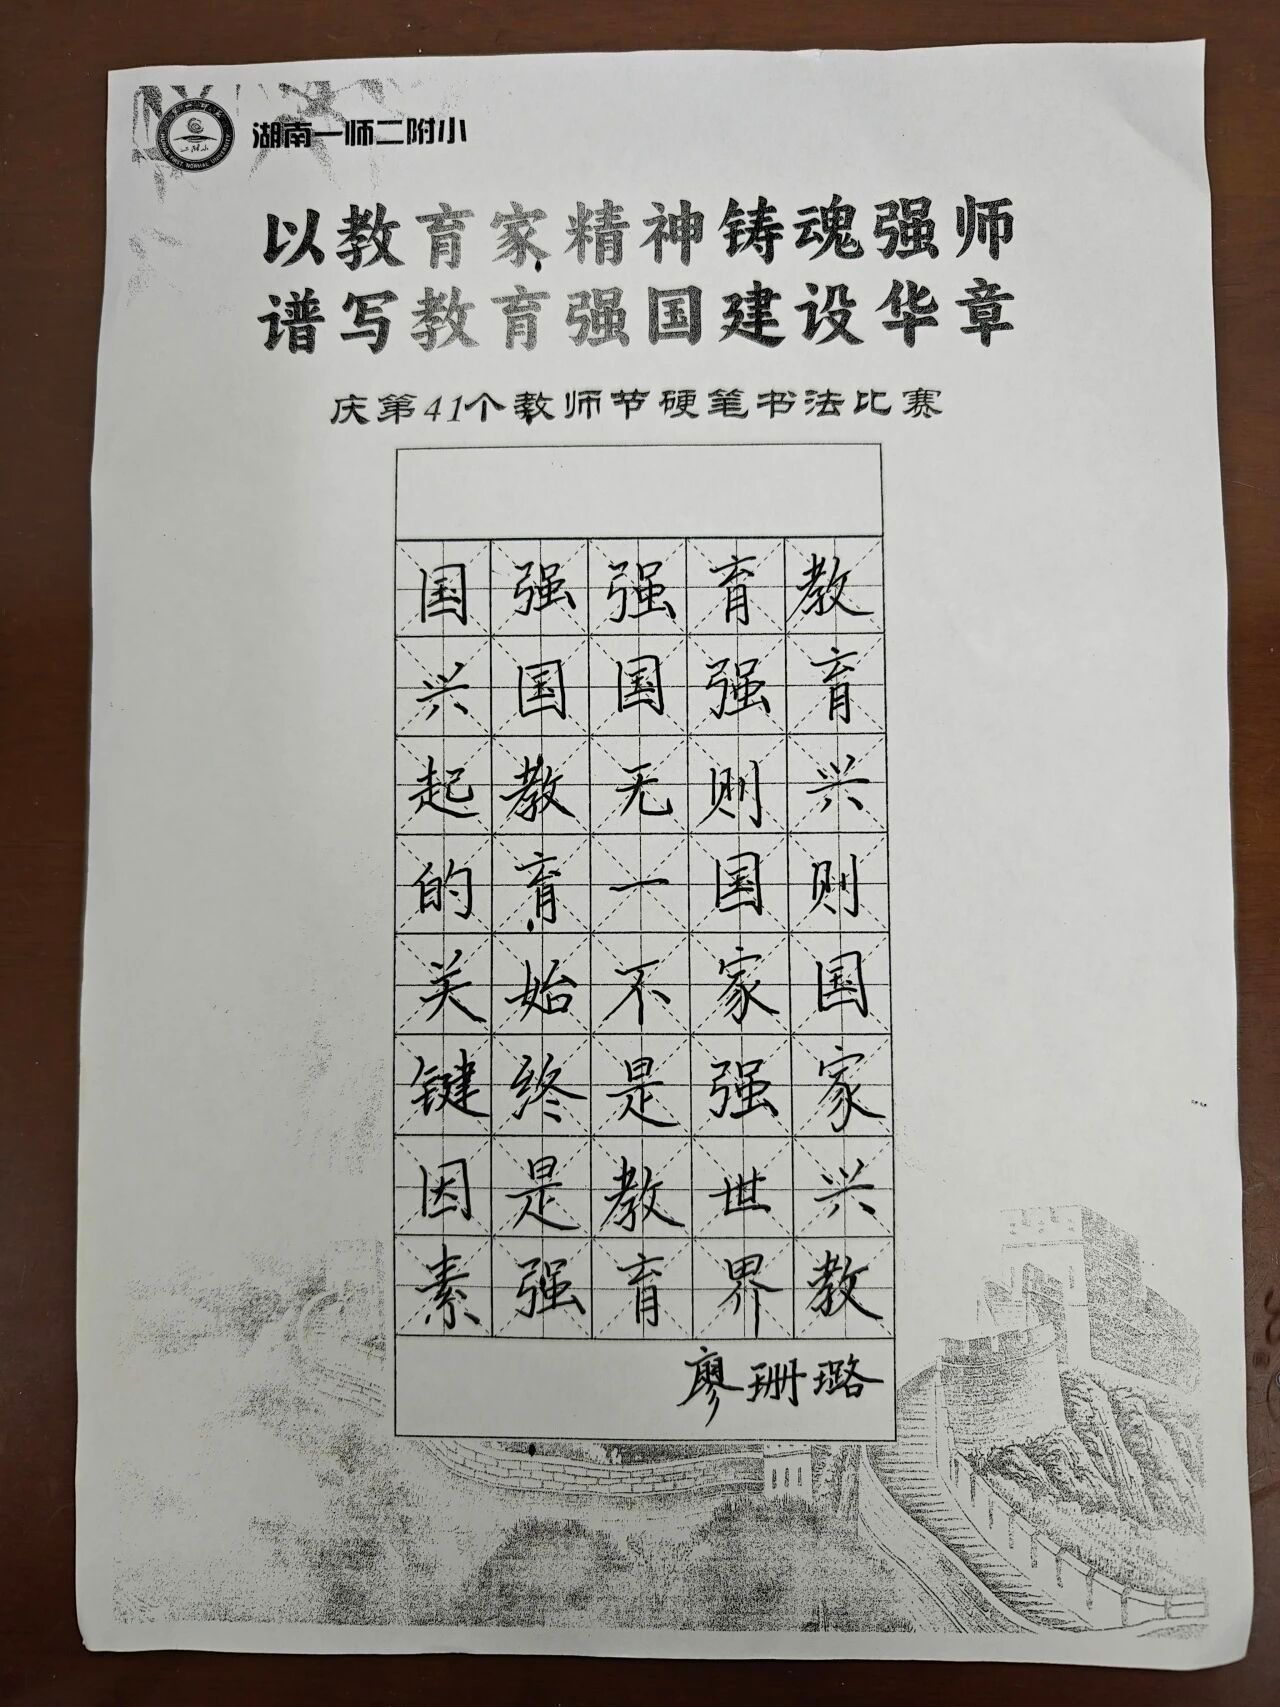 湖南一师二附小
以教育家精神铸魂强师
谱写教育强国建设华章
庆第41个教师节硬笔书法比赛
教育兴则国家兴教
育强则国家强世界
强国无一不是教育
强国教育始终是强
国兴起的关键因素
廖珊璐